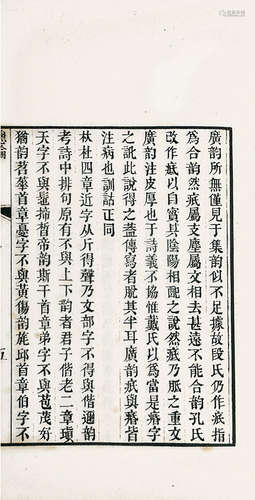 廣韻所無僅見于集韻似不足據故段氏仍作疧指
為合韻然疧屬支塵屬文相去甚遠不能合韻孔氏
改作疷以自實其陰陽相配之說然疷乃胝之重文
廣韻注皮厚也于詩義不協惟戴氏以為當是痻字
之訛此說得之蓋傳寫者脫其半耳廣韻疧與痻皆
注病也訓詁正同
杕杜四章近字从斤得聲乃文部字不得與偕邇韻
考詩中排句原有不與上下韻者君子偕老二章瑱
天字不與揥晳帝韻斯干首章弟字不與苞茂好
猶韻苕華首章憂字不與黃傷韻旄邱首章伯字不